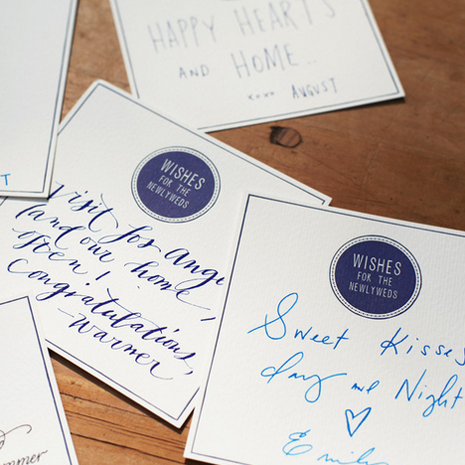 HAPPY HEARTS
AND HOME..
xoxo AUGUST
T
WISHES
FOR THE
NEWLYWEDS
Visit Los Ange
(and our home,
often!
Congratulations,
-Warner
WISHES
FOR THE
NEWLYWEDS
Sweet Kisses
day and Night
♡
Emily
mmer